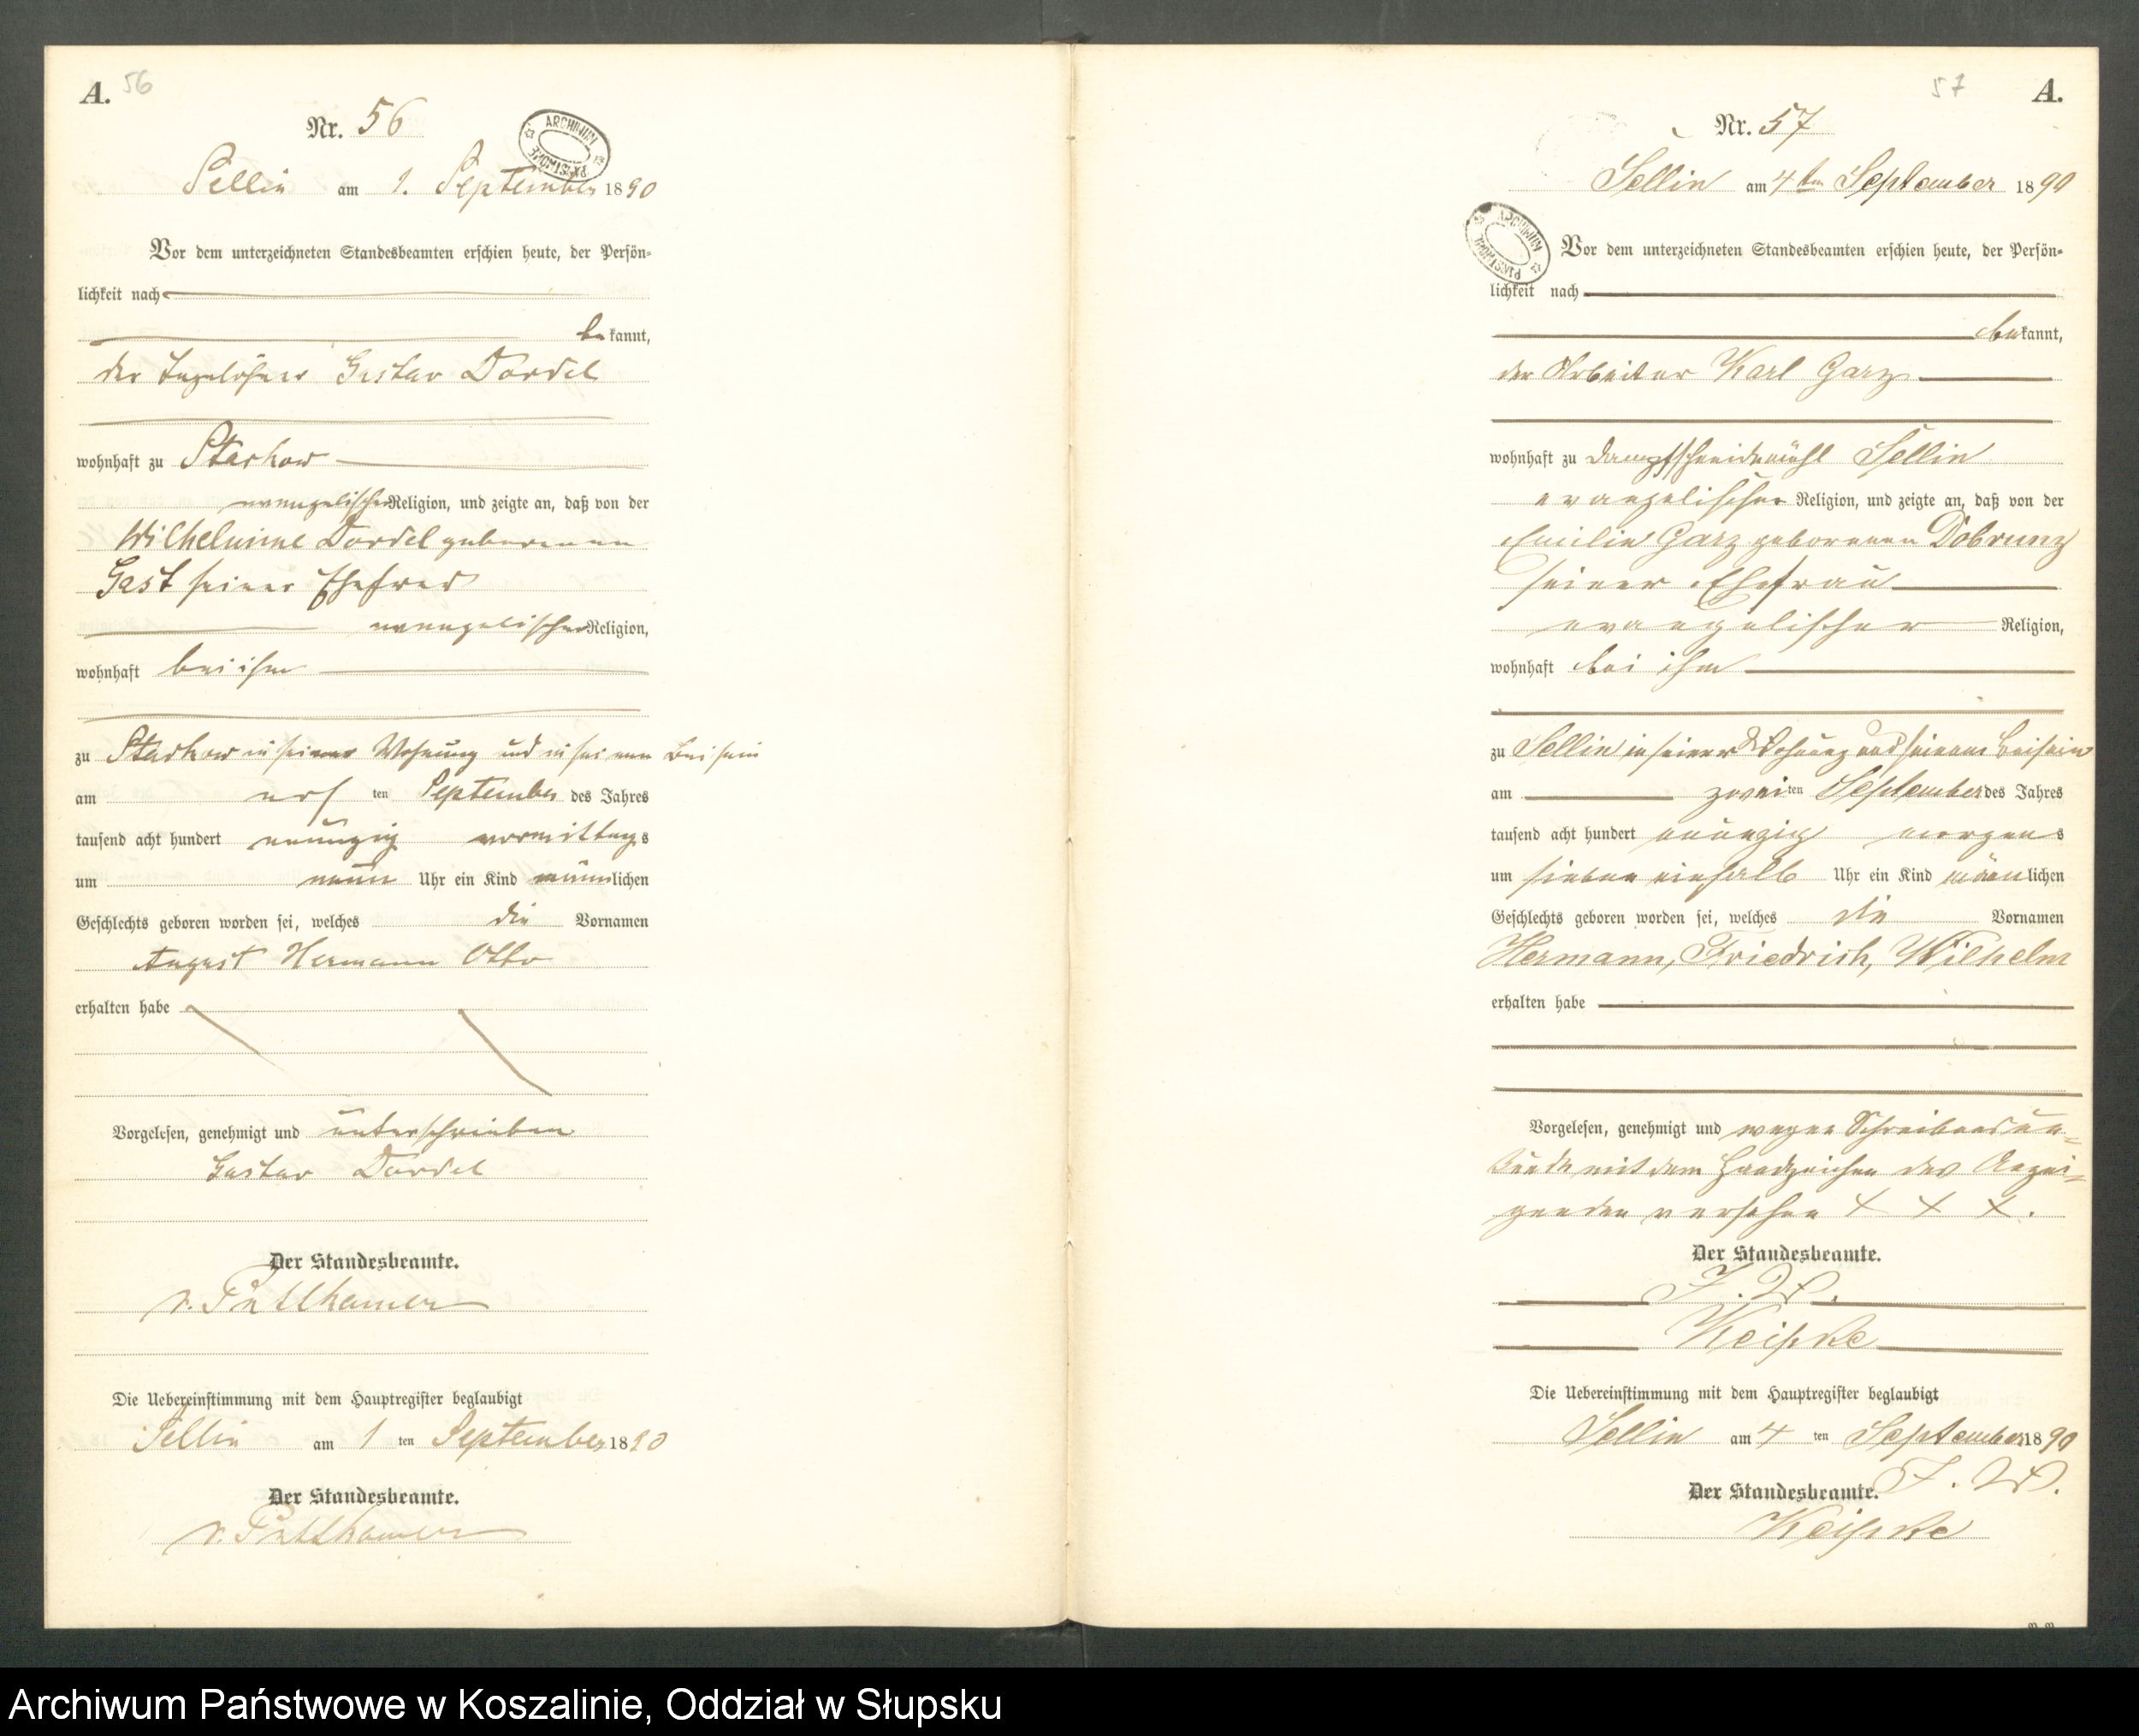 A. 56
Nr. 56
ARCHIWUM PAŃSTWOWE
Sellin am 1. September 1890
Vor dem unterzeichneten Standesbeamten erschien heute, der Persön-
lichkeit nach
bekannt,
der Tagelöhner Gustav Dordel
wohnhaft zu Starkow
evangelischer Religion, und zeigte an, daß von der
Wilhelmine Dordel geborenen
Gast seiner Ehefrau
evangelischer Religion,
wohnhaft bei ihm
zu Starkow in seiner Wohnung und in seinem Beisein
am ersten September des Jahres
tausend acht hundert neunzig vormittags
um neun Uhr ein Kind männlichen
Geschlechts geboren worden sei, welches die Vornamen
August Hermann Otto
erhalten habe
Vorgelesen, genehmigt und unterschrieben
Gustav Dordel
Der Standesbeamte.
v. Puttkamer
Die Uebereinstimmung mit dem Hauptregister beglaubigt
Sellin am 1 ten September 1890
Der Standesbeamte.
v. Puttkamer
57 A.
Nr. 57
Sellin am 4ten September 1890
ARCHIWUM PAŃSTWOWE
Vor dem unterzeichneten Standesbeamten erschien heute, der Persön-
lichkeit nach
bekannt,
der Arbeiter Karl Garz
wohnhaft zu Dampfschneidemühl Sellin
evangelischer Religion, und zeigte an, daß von der
Emilie Garz geborenen Dobrunz
seiner Ehefrau
evangelischer Religion,
wohnhaft bei ihm
zu Sellin in seiner Wohnung und seinem Beisein
am zweiten September des Jahres
tausend acht hundert neunzig morgens
um sieben einhalb Uhr ein Kind männlichen
Geschlechts geboren worden sei, welches die Vornamen
Hermann, Friedrich, Wilhelm
erhalten habe
Vorgelesen, genehmigt und wegen Schreibensun=
kunde mit dem Handzeichen des Anzei=
genden versehen X X X.
Der Standesbeamte.
I. V.
Die Uebereinstimmung mit dem Hauptregister beglaubigt
Sellin am 4 ten September 1890
Der Standesbeamte. I. V.
Archiwum Państwowe w Koszalinie, Oddział w Słupsku